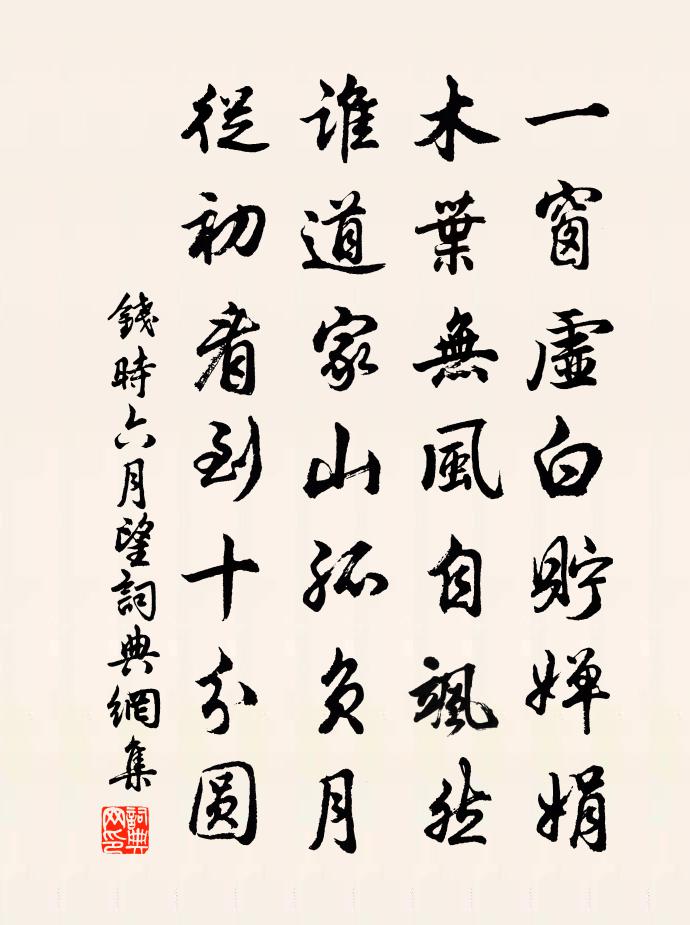 一窗虛白貯嬋娟
木葉無風自颯然
誰道家山孤負月
從初看到十分圓
錢時六月望詞典網集
詞典網印